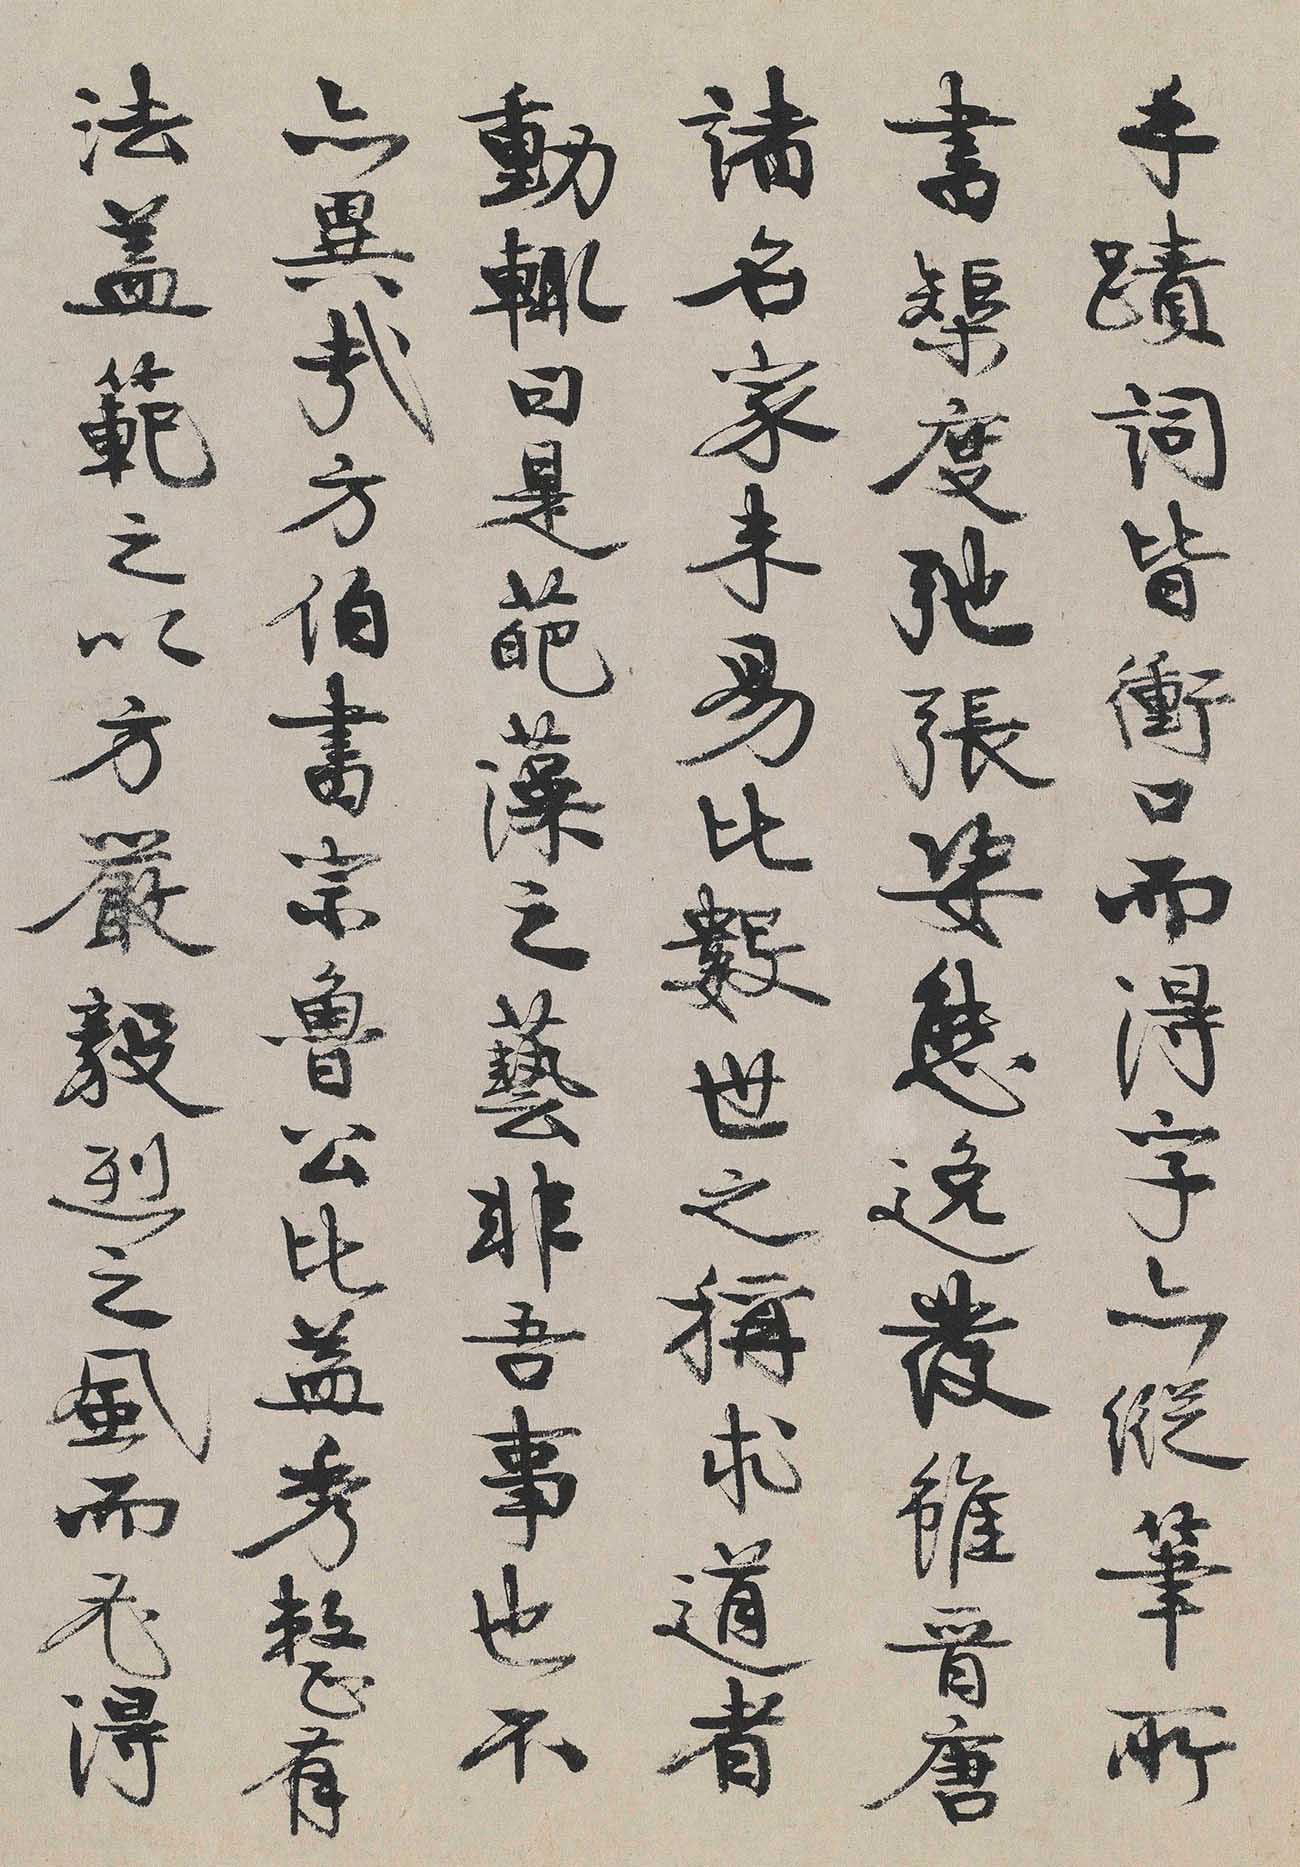 手蹟詞皆衝口而得字亦縱筆所
書榘度弛張姿態逸發雖晉唐
諸名家未易比數世之稱求道者
動輒曰是葩藻之藝非吾事也不
亦異哉方伯書宗魯公比益秀整有
法盖範之以方嚴毅烈之風而充得